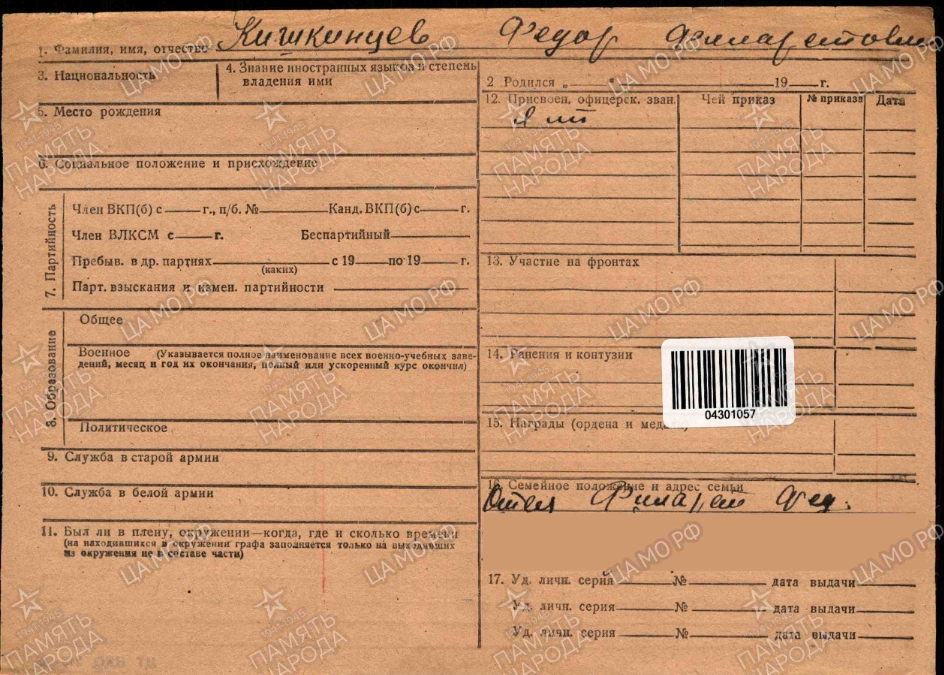 1. Фамилия, имя, отчество Кишкинцев Федор Филаретович
3. Национальность
4. Знание иностранных языков и степень
владения ими
5. Место рождения
6. Социальное положение и присхождение
7. Партийность
Член ВКП(б) с ___ г., п/б. № ___ Канд. ВКП(б) с ___ г.
Член ВЛКСМ с ___ г. Беспартийный ___
Пребыв. в др. партиях ___ с 19 ___ по 19 ___ г.
(каких)
Парт. взыскания и измен. партийности ___
8. Образование
Общее
Военное (Указывается полное наименование всех военно-учебных заве-
дений, месяц и год их окончания, полный или ускоренный курс окончил)
Политическое
9. Служба в старой армии
10. Служба в белой армии
11. Был ли в плену, окружении—когда, где и сколько времени
(на находившихся в окружении графа заполняется только на выходивших
из окружения не в составе части)
2 Родился „ ___ 19 ___ г.
12. Присвоен. офицерск. зван. Чей приказ № приказа Дата
13. Участие на фронтах
14. Ранения и контузии
04301057
15. Награды (ордена и медали)
16. Семейное положение и адрес семьи
Отец Филарет Фед.
17. Уд. личн. серия ___ № ___ дата выдачи ___
Уд. личн. серия ___ № ___ дата выдачи ___
Уд. личн. серия ___ № ___ дата выдачи ___
ПАМЯТЬ
НАРОДА
ЦАМО РФ